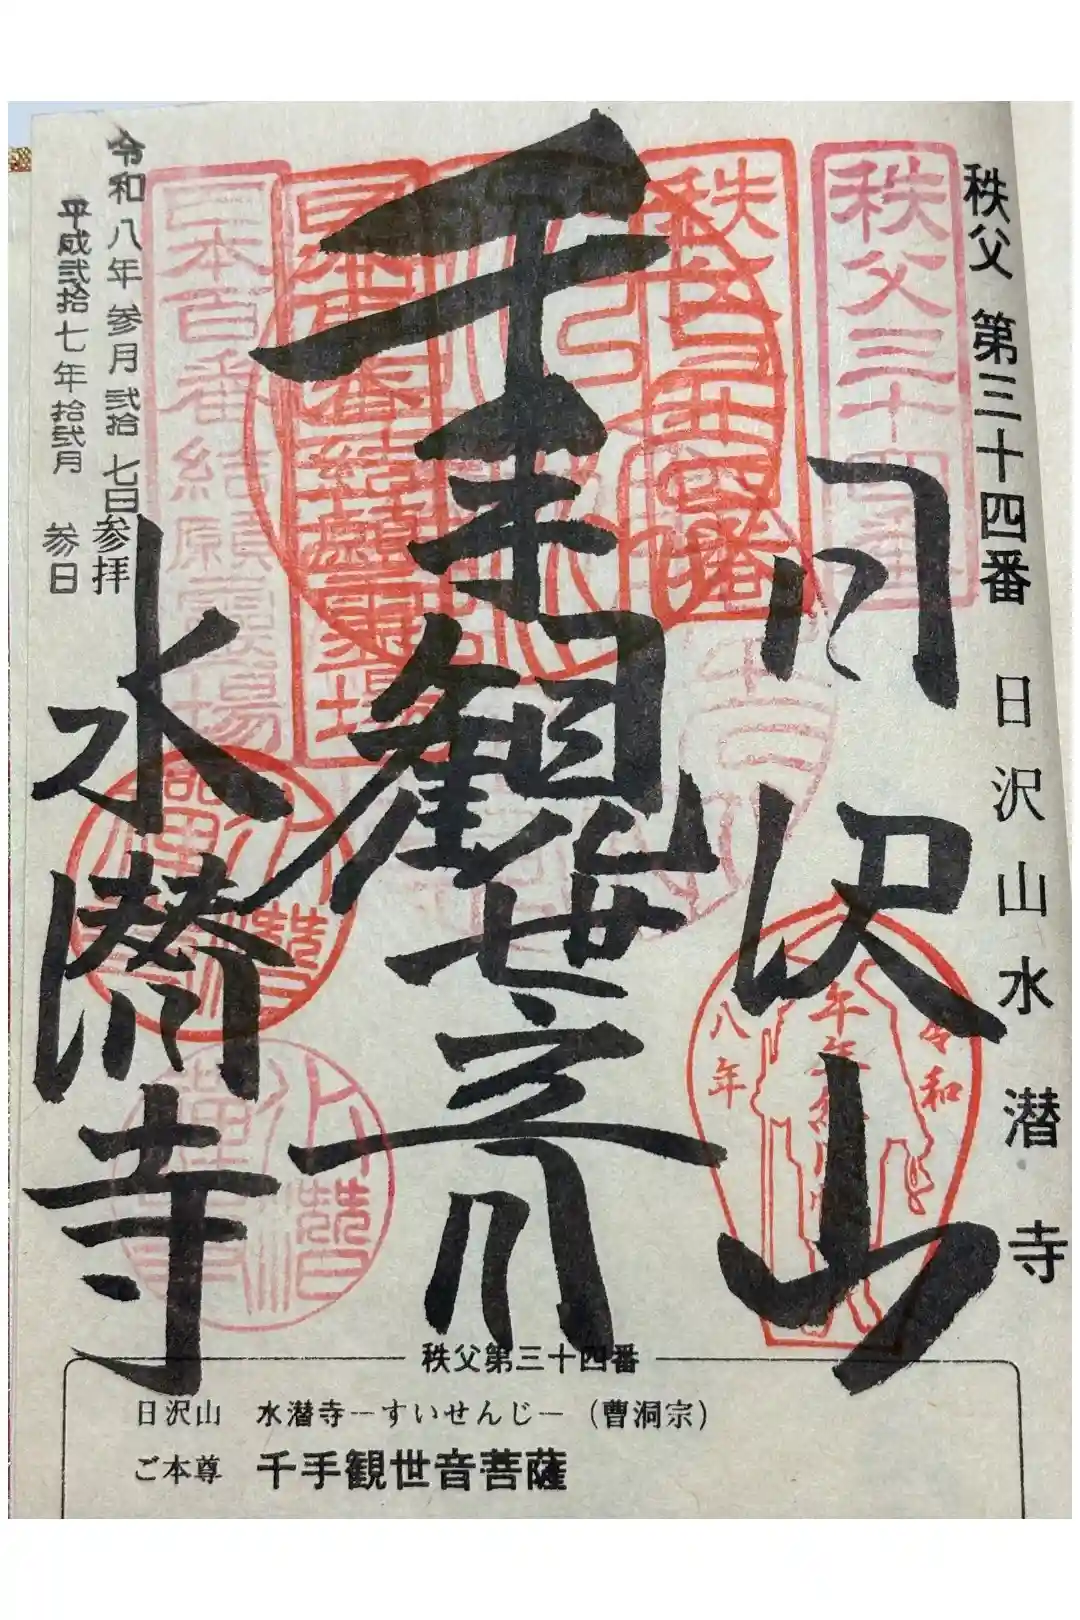 秩父 第三十四番 日沢山水潜寺
秩父三十四番
秩父三十四番
日沢山
千手観世音
日本百番結願霊場
日本百番結願霊場
水潜寺
令和八年参月弐拾七日参拝
平成弐拾七年拾弐月参日
令和
八年
秩父第三十四番
日沢山 水潜寺−すいせんじ−（曹洞宗）
ご本尊 千手観世音菩薩